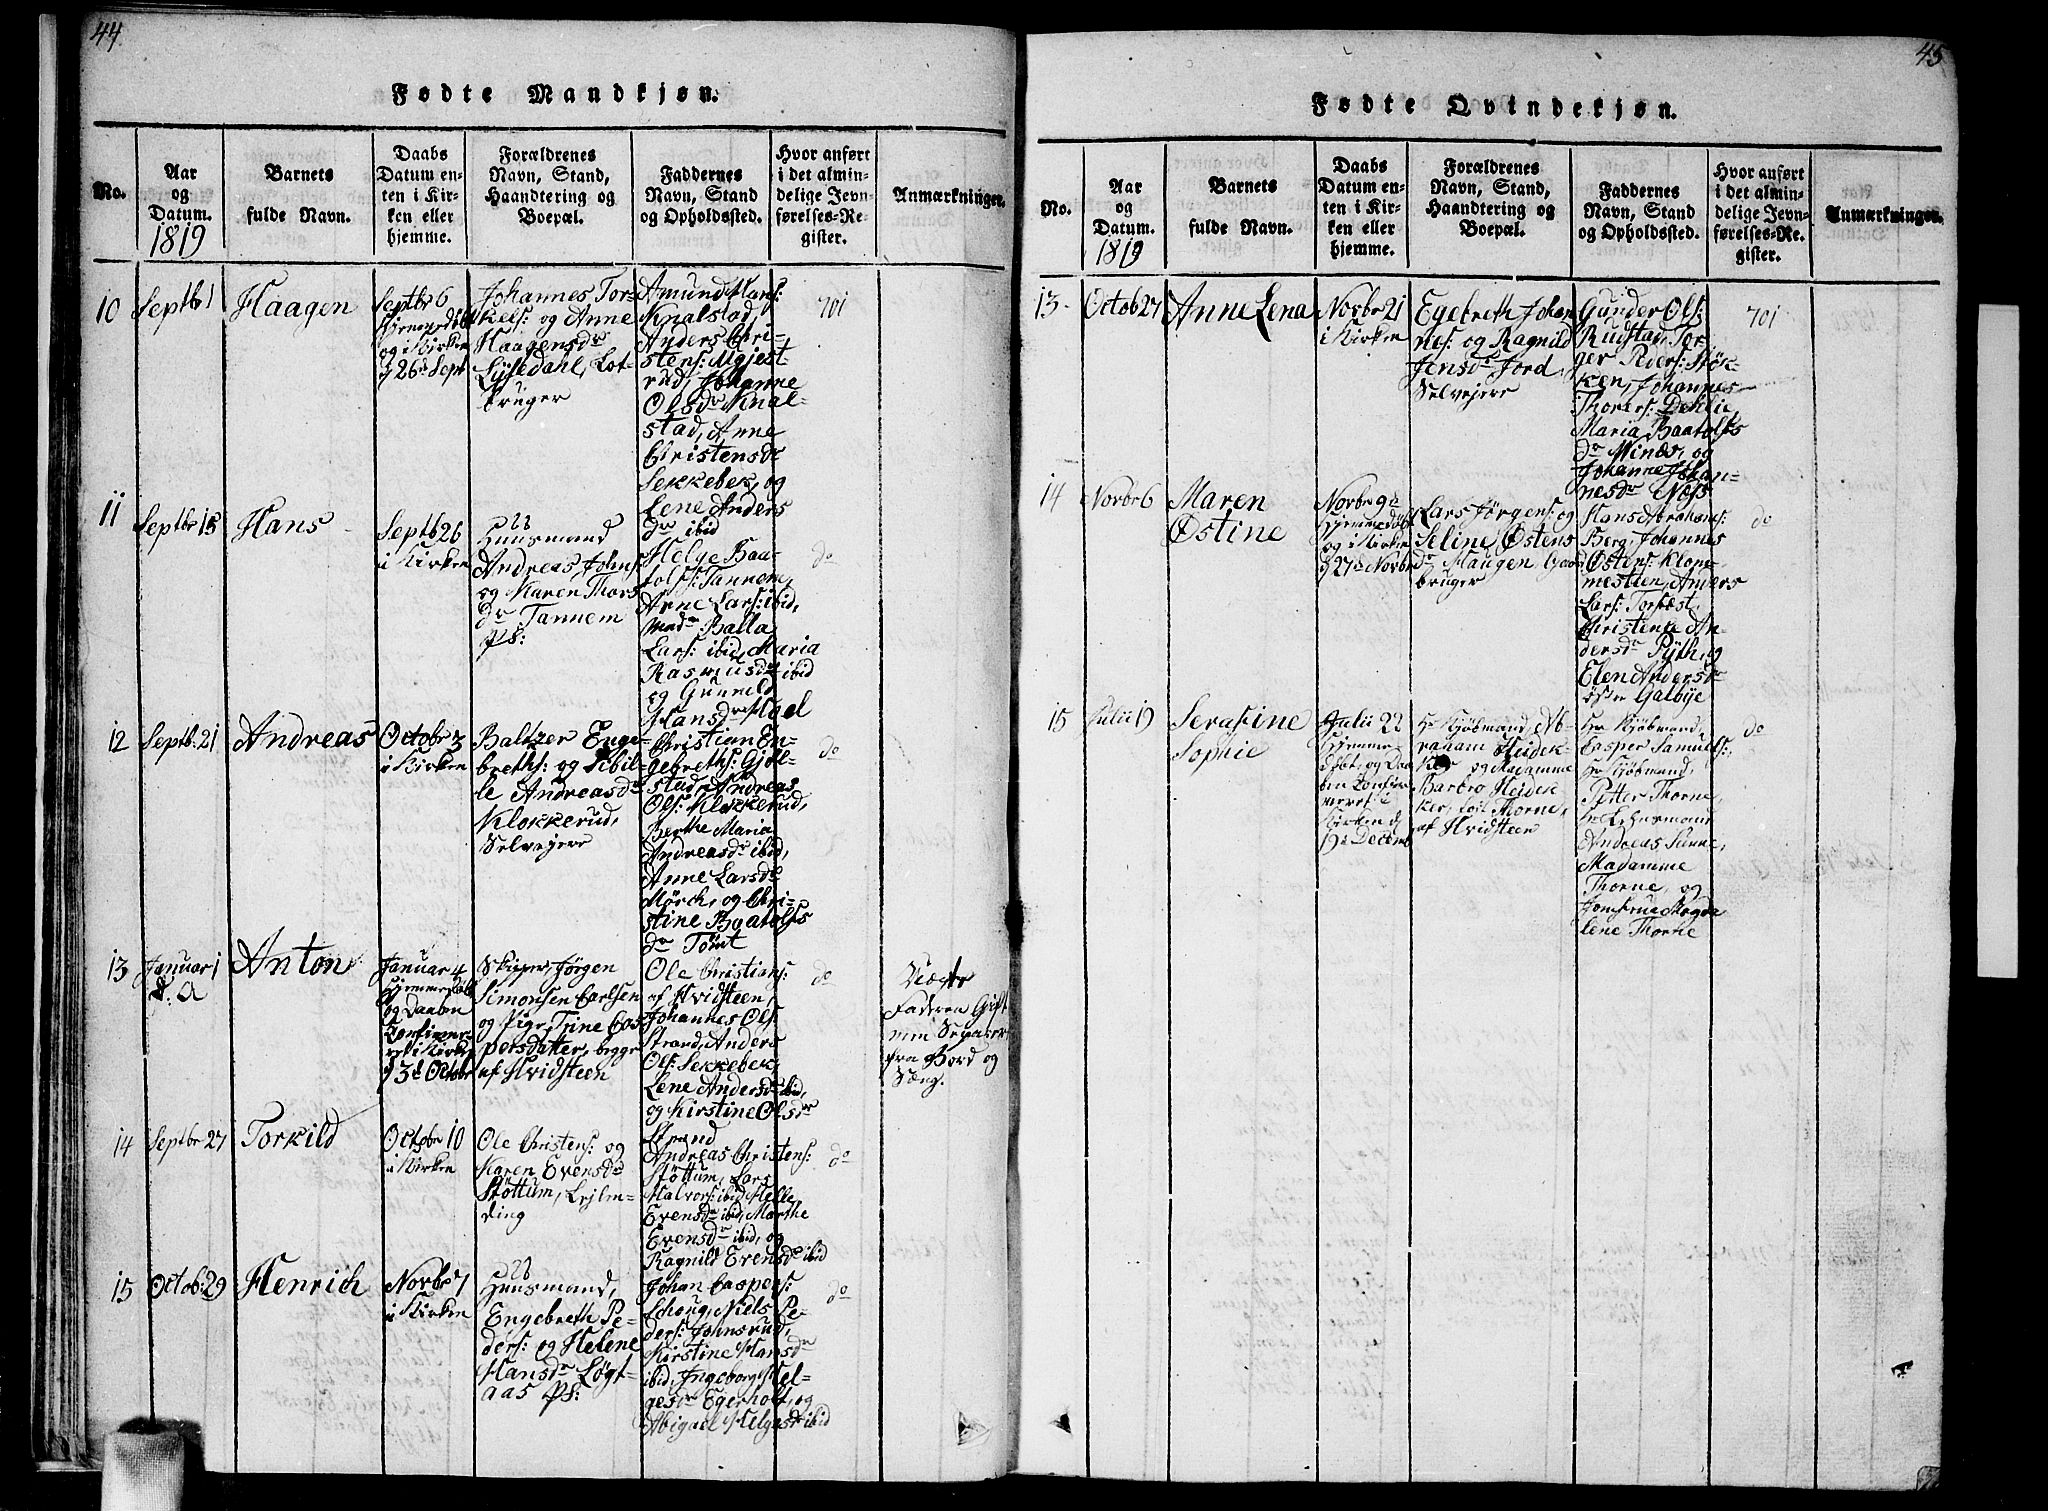 44
Fødte Mandkjøn.
No.
Aar
og
Datum.
1819
Barnets
fulde Navn.
Daabs
Datum en-
ten i Kir-
ken eller
hjemme.
Forældrenes
Navn, Stand,
Haandtering og
Boepæl.
Faddernes
Navn, Stand
og Opholdssted.
Hvor anført
i det almin-
delige Jevn-
førelses-Re-
gister.
Anmærkninger.
10
Septbr 1
Haagen
Septbr 6
hjemmedøbt
og i Kirken
d 26de Sept
Johannes Tor-
kels: og Anne
Haagensdr
Lysedahl, Lot-
bruger
Amund Hans:
Knalstad,
Anders Chri-
stens: Mgjest-
rud, Johanne
Olsdr Knal-
stad, Anne
Christensdr
Sekkebek, og
Lene Anders
dr ibid
701
11
Septbr 15
Hans
Septb 26
i Kirken
Huusmand
Andreas Johns
og Karen Thors
dr Tannem
Ps:
Helge Baa-
tolfs: Tannem,
Arne Lars: ibid,
Balla
Lars: ibid, Maria
Rasmusdr ibid
og Gunild
Hansdr Moel
do
12
Septb: 21
Andreas
Octobr 3
i Kirken
Baltzer Enge-
breths: og Sibil-
le Andreasdr
Klokkerud,
Selvejere
Christian En-
gebreths: Gjøl-
stad, Andreas
Ols: Klokkerud,
Berthe Maria
Andreasdr ibid,
Anne Larsdr
Mørch, og Chri-
stine Baatolfs
dr Tømt
do
13
Januar 1
d. A
Anton
Januar 4
hjemmedøbt
og Daaben
Confirme-
ret i Kirken
d 3de Octobr
Skipper Jørgen
Simonsen Carlsen
og Pige Trine Cas-
persdatter, begge
af Hvidsteen
Ole Christians:
af Hvidsteen,
Johannes Ols:
Strand, Anders
Ols: Sekkebek,
Lene Andersdr ibid,
og Kirstine Olsdr
Strand
do
Uægte
Faderen Gift
men Separeret
fra Bord og
Sæng.
14
Septbr 27
Torkild
Octobr 10
i Kirken
Ole Christens: og
Karen Evensdr
Støttum, Lejlen-
ding
Andreas Christens:
Støttum, Lars
Halvors: ibid, Helle
Evensdr ibid, Marthe
Evensdr ibid, og
Ragnild Evensdr ibid
do
15
Octob: 29
Henrich
Norbr 7
i Kirken
Huusmand,
Engebreth Pe-
ders: og Helene
Hansdr Løgt-
aas Ps:
Johan Caspers:
Schoug, Niels Pe-
ders: Johnsrud,
Kirstine Hansdr
ibid, Ingeborg Hel-
gesdr Egerholt, og
Abigael Helgesdr ibid
do
45
Fødte Qvindekjøn.
No.
Aar
og
Datum.
1819
Barnets
fulde Navn.
Daabs
Datum en-
ten i Kir-
ken eller
hjemme.
Forældrenes
Navn, Stand,
Haandtering og
Boepæl.
Faddernes
Navn, Stand
og Opholdssted.
Hvor anført
i det almin-
delige Jevn-
førelses-Re-
gister.
Anmærkninger.
13
Octob 27
Anne Lena
Norbr 21
i Kirken
Egebreth Johan
nes: og Ragnild
Jensdr Jord,
Selvejere
Gunder Ols:
Rudstad, Tor-
ger Peders: Støk-
ken, Johannes
Thorers: Dehlie,
Maria Baatolfs
dr Minds, og
Johanne Johan-
nesdr Næss
701
14
Norbr 6
Maren
Østine
Norbr 9de
hjemmedøbt
og i Kirken
d 27de Norbr
Lars Jørgens: og
Seline Østens
dr Haugen, Gaard
bruger
Hans Abrahams:
Berg, Johannes
Østens: Klom-
mestien, Anders
Lars: Torsæst,
Christense An-
dersdr Pyth, og
Elen Andersdr
østre Galbye
do
15
Julii 19
Serafine
Sophie
Julii 22
hjemme
døbt, og Daa
ben Confir-
meret i
Kirken d
19de Decemb
Hr Kjøbmand Ab-
raham Heidek-
ker og Madamme
Barbro Heidek
ker, føil Thorne,
af Hvidsteen
Hr Kjøbmand
Casper Samuels:,
Hr Kjøbmand,
Petter Thorne,
Hr Lehnsmand
Andreas Sunne,
Madamme
Thorne, og
Jomfrue Magda
lene Thorne
do